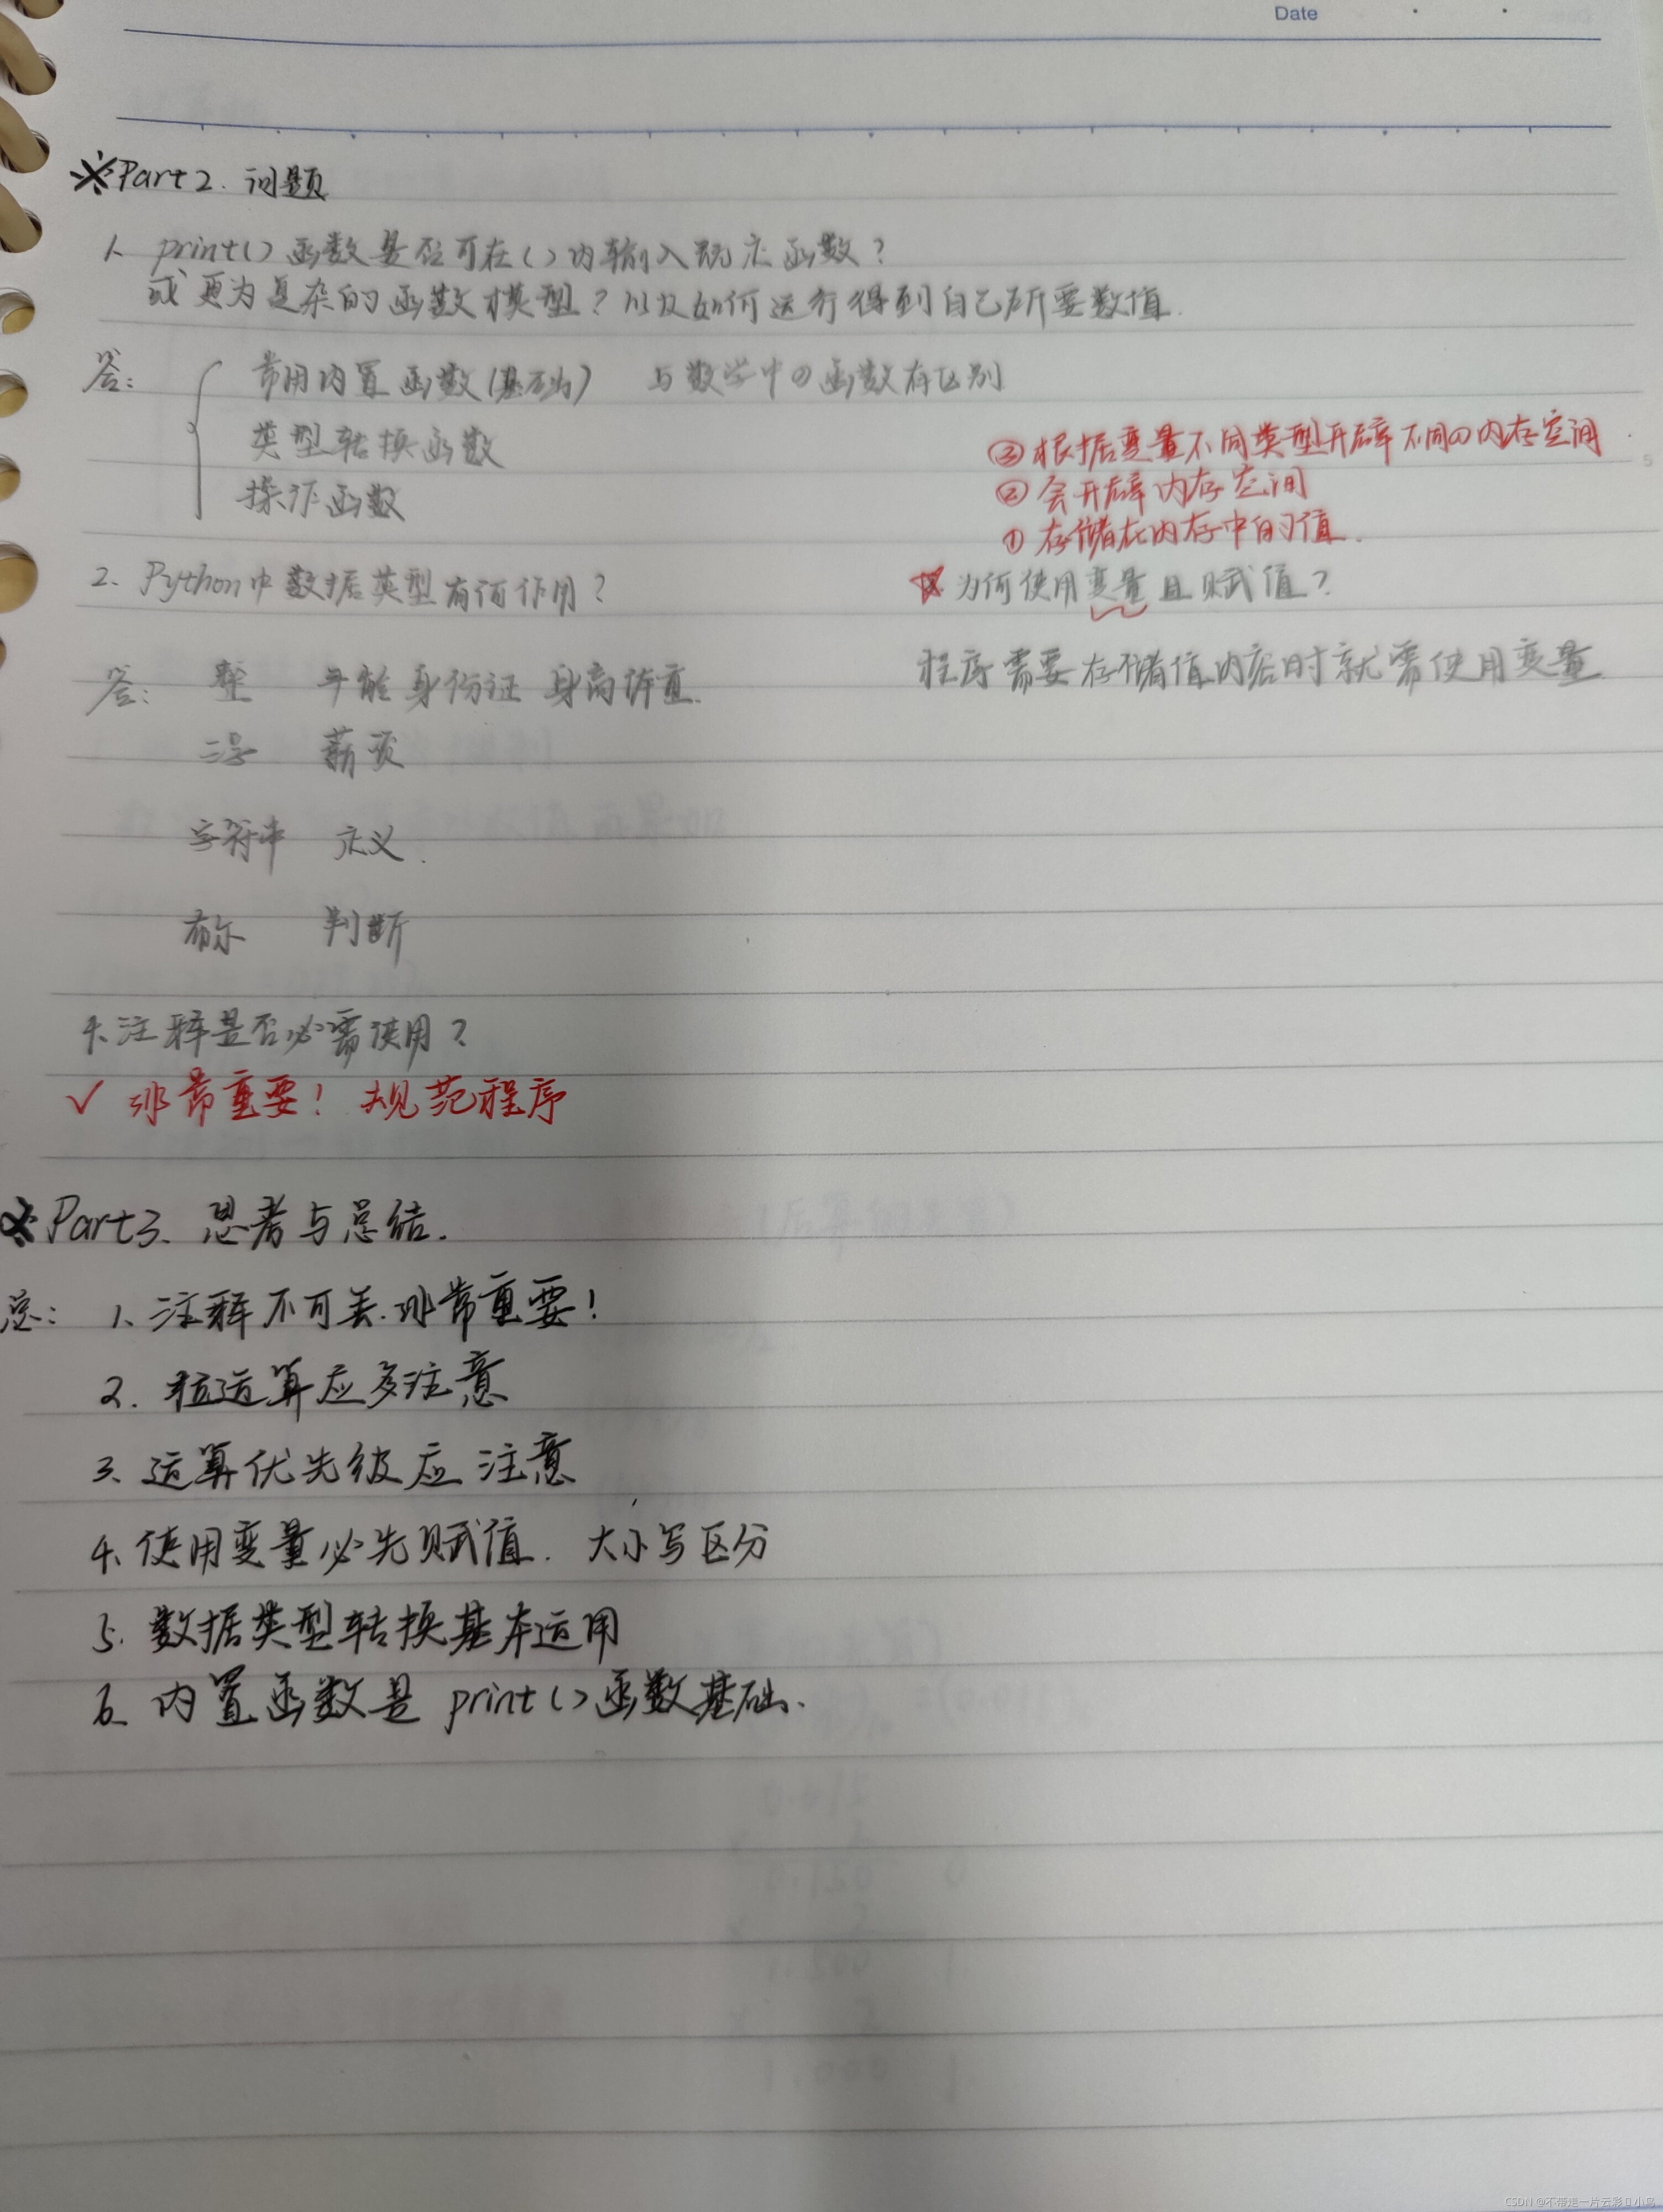 Date
※Part2. 问题
1、print()函数是否可在()内输入既定函数?
或更为复杂的函数模型?以及如何运行得到自己所要数值.
答: 常用内置函数(基础) 与数学中の函数有区别
类型转换函数
操作函数
③根据变量不同类型开辟不同の内存空间
②会开辟内存空间
①存储在内存中的值.
2、Python中数据类型有何作用?
☆为何使用变量且赋值?
程序需要存储值内容时就需使用变量
答: 整 年龄 身份证 身高体重.
薪资
字符串 定义.
布尔 判断
4、注释是否必需使用?
✓ 非常重要! 规范程序
※Part3、思考与总结.
总: 1、注释不可丢.非常重要!
2. 运算应多注意
3、运算优先级应注意
4、使用变量必先赋值. 大小写区分
5. 数据类型转换基本运用
6、内置函数是print()函数基础.
CSDN @不带走一片云彩の小鸟